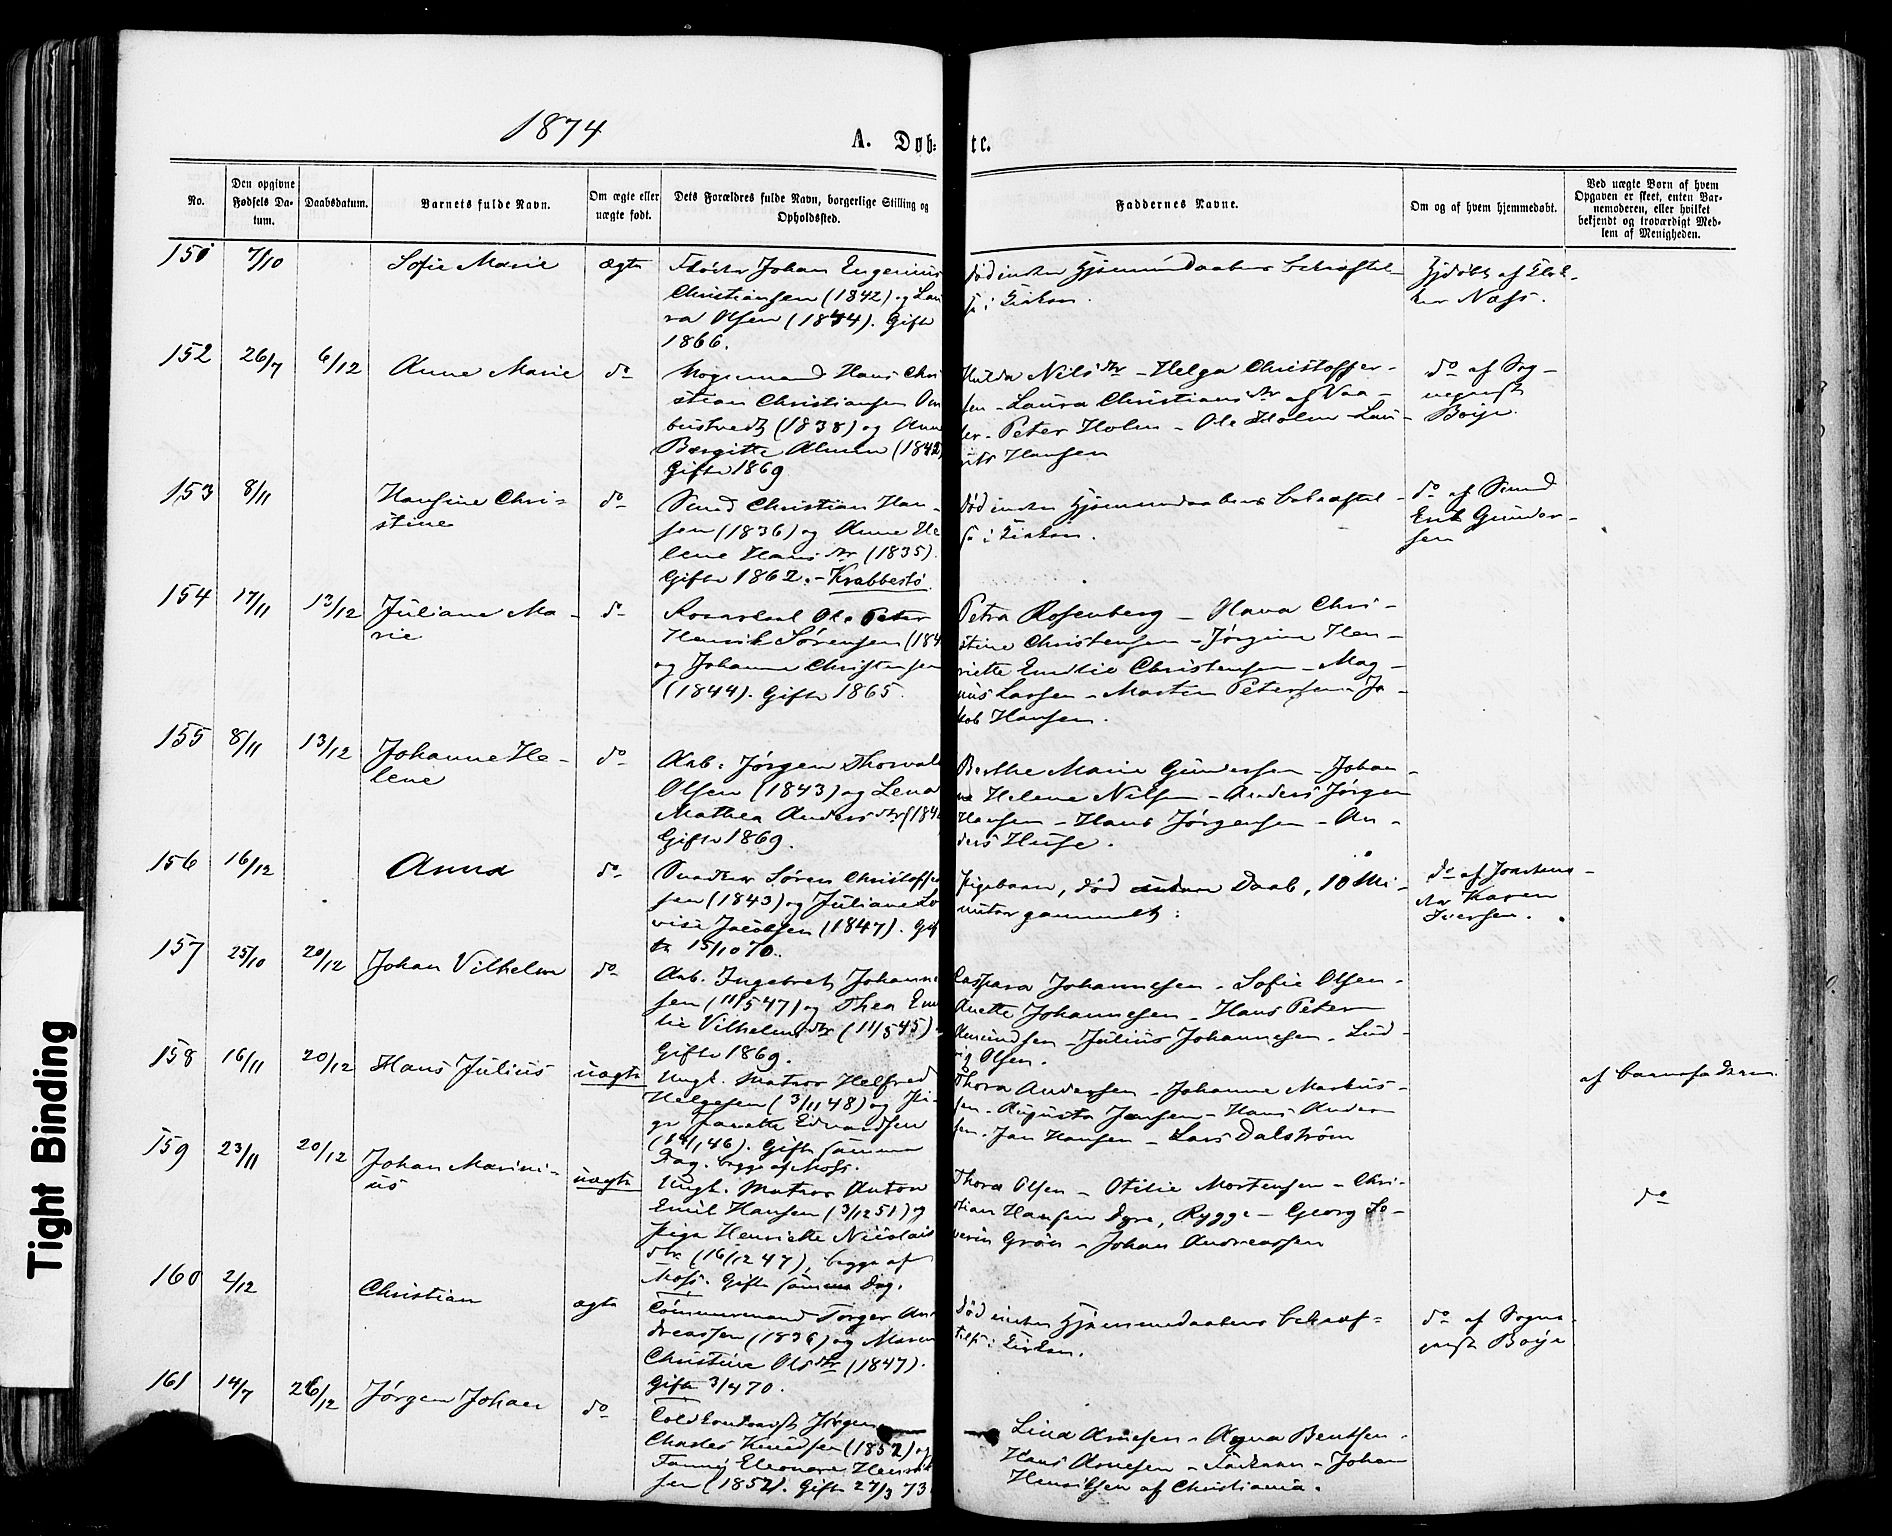 1874
A. Døb- te.
No.
Den opgivne Fødsels Da-tum.
Daabsdatum.
Barnets fulde Navn.
Om ægte eller uægte født.
Dets Forældres fulde Navn, borgerlige Stilling og Opholdssted.
Faddernes Navne.
Om og af hvem hjemmedøbt.
Ved uægte Børn af hvem Opgaven er skeet, enten Bar-nemoderen, eller hvilket bekjendt og troværdigt Med-lem af Menigheden.
151 7/10 Sofie Marie ægte
Johan Eugenius
Christiansen (1842) og Lau
ra Olsen (1844). Gift
1866.
død inden Hjemmedaabens bekræftel-
se i Kirken.
Hjdøbt af
Næss.
152 26/7 6/12 Anne Marie do
Hans Chri
stian Christiansen Om
bustvedt (1838) og Ann
Birgitte (1842
Gift 1869
Hulda Nilsdtr - Helga Christoffer-
sen - Laura Christiansdtr af Vaa-
ler - Peter Holm - Ole Holm - Lau-
rits Hansen
do af Sog-
nepræst
Boije
153 8/11 Hansine Chri-
stine do
Smed Christian Han-
sen (1836) og Anne He
lene Hansdtr (1835).
Gift 1862. - Krabbestø
død inden Hjemmedaabens bekræftel-
se i Kirken.
do af Smed
Gunder-
sen
154 17/11 13/12 Juliane Ma-
rie do
Ole Peter
Henrik Sørensen (184
og Johanne Christensen
(1844). Gift 1865.
Petra Rosenberg - Hana Chri-
stine Christensen - Jørgine Hen-
riette Emilie Christensen - Mag-
nus Larsen - Martin Petersen - Ja-
kob Hansen.
155 8/11 13/12 Johanne He-
lene do
Arb. Jørgen Thorvald
Olsen (1843) og Lena
Mathea Andersdtr (184
Gift 1869.
Berthe Marie Gundersen - Johan-
ne Helene Nilsen - Anders Jørgen
Hansen - Hans Jørgensen - An-
ders
156 16/12 Anna do
Snedker Søren Christoffer
sen (1843) og Juliane Lo
vise Jacobsen (1847). Gif
te 15/10 70.
Pigebarn, død uden Daab, 10 Mi-
nuter gammelt.
do af Jordemo-
dr Karen
Iversen.
157 25/10 20/12 Johan Vilhelm do
Arb. Ingebret Johanne
sen (11/5 47) og Thea Emi
lie Vilhelmsdtr (11/5 45)
Gift 1869.
Caspara Johannesen - Sofie Olsen -
Anette Johannesen - Hans Peter
Amundsen - Julius Johannesen - Lud-
vig Olsen.
158 16/11 20/12 Hans Julius uægte
Ungk. Matros Helfred
Helgesen (3/11 48) og Pi-
ge Janette Edvardsen
Gift samme
Dag. begge af Moss.
Thora Andersen - Johanne Markus-
sen - Augusta Jensen - Hans Ander
sen - Jan Hansen - Lars Dalstrøm
af barnefaderen
159 23/11 20/12 Johan Marini-
us uægte
Ungk. Matros Anton
Emil Hansen (3/12 51) og
Pige Henriette Nicolais
dtr (16/12 47), begge af
Moss. Gift samme Dag.
Thora Olsen - Otilie Mortensen - Chri-
stian Hansen Dyre, Rygge - Georg Se-
verin Grøn - Johan Andreassen
do
160 2/12 Christian ægte
Tømmermand Torger An
dreassen (1836) og Maren
Christine Olsdtr (1847).
Gift 3/4 70.
Død inden Hjemmedaabens bekræf-
telse i Kirken.
do af Sogne-
præst Boije
161 14/7 26/12 Jørgen Johan do
Toldkontrolist Jørgen
Charles Knudsen (1852) og
Fanny Eleonore Henrik
sen (1852). Gift 27/3 73
Lina Arnesen - Agna Bentsen -
Hans Arnesen - Faderen - Johan
Henriksen af Christiania.
Tight Binding